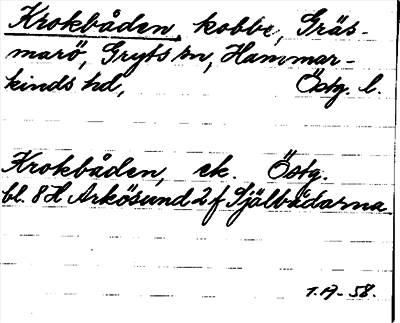 Krokbåden, kobbe, Gräs-
marö, Gryts sn, Hammar-
kinds hd, Östg. l.
Krokbåden, ek. Östg.
bl. 8H Arkösund 2f Själbådarna
58.